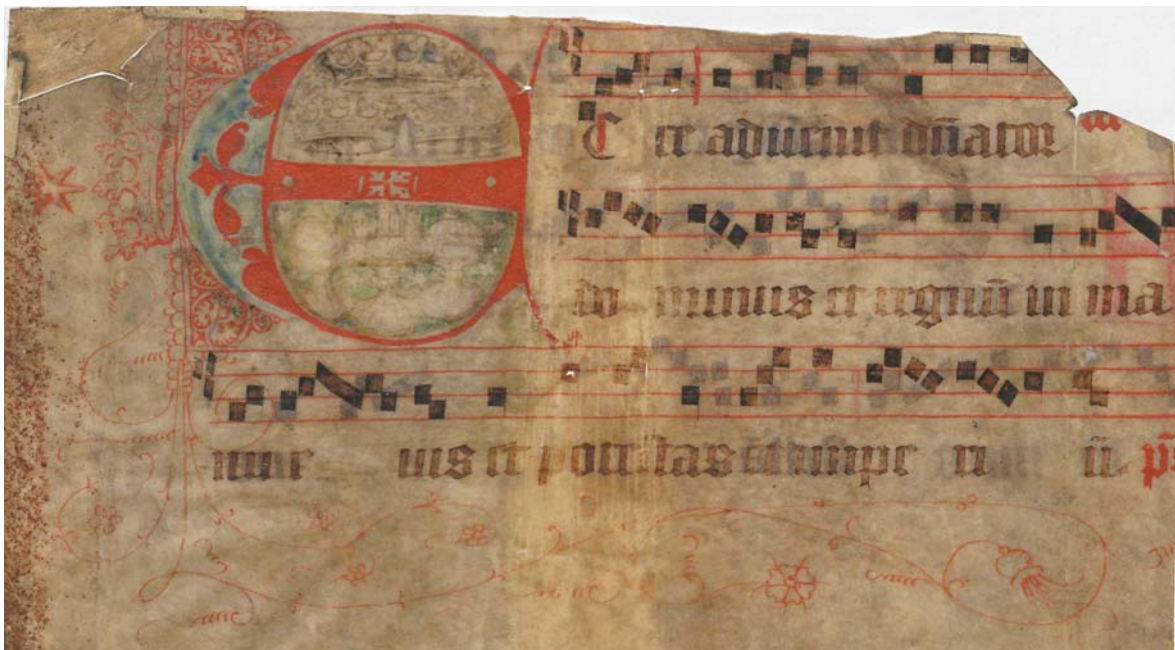 ECce aduenit dñator
do minus et regnũ in ma
nu e ius et potestas et impe ri ũ.